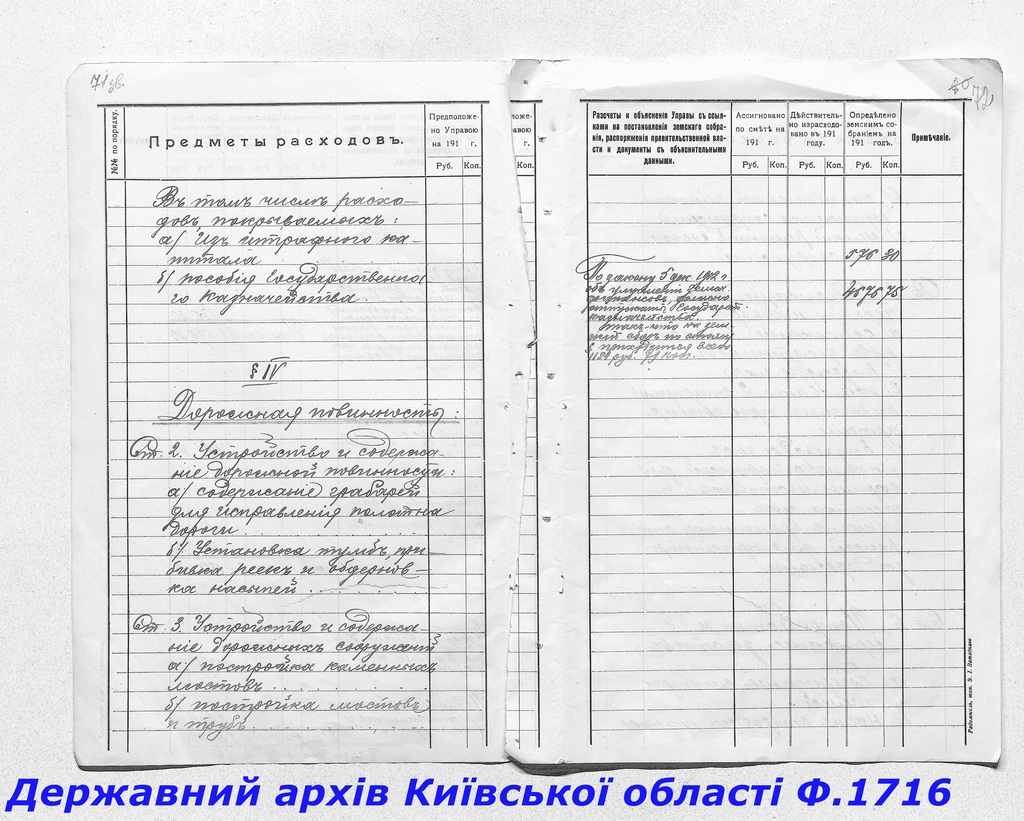 71 зв.
№№ по порядку.
Предметы расходовъ.
Предположе-
но Управою
на 191 г.
Руб. Коп.
Въ томъ числѣ расхо-
довъ, покрываемыхъ:
а/ Изъ штрафного ка-
питала
б/ пособія Государственна
го Казначейства.
§ IV
Дорожная повинность:
Ст. 2. Устройство и содержа-
ніе дорожной повинности:
а/ содержаніе грабарей
для исправленія полотна
дороги
б/ Установка тумбъ, при-
бивка реекъ и обдернов-
ка насыпей
Ст. 3. Устройство и содержа-
ніе дорожныхъ сооруженій
а/ постройка каменныхъ
мостовъ
б/ постройка мостовъ
и трубъ
редположе-
о Управою
а 191 г.
Коп.
72
Разсчеты и объясненія Управы съ ссыл-
ками на постановленія земскаго собра-
нія, распоряженія правительственной вла-
сти и документы съ объяснительными
данными.
Ассигновано
по смѣтѣ на
191 г.
Руб. Коп.
Дѣйствитель-
но израсходо-
вано въ 191
году.
Руб. Коп.
Опредѣлено
земскимъ со-
браніемъ на
191 годъ.
Руб. Коп.
Примѣчаніе.
576 30
По закону 5 дек. 1912 г
объ улучшеніи земск.
финансовъ, должно
отпускать Государст.
казначейство.
4676 75
такъ-что на зем-
скій сборъ по
приходится всего
1184 руб. 79 коп.
Радомысль, тип.
Державний архів Київської області Ф.1716